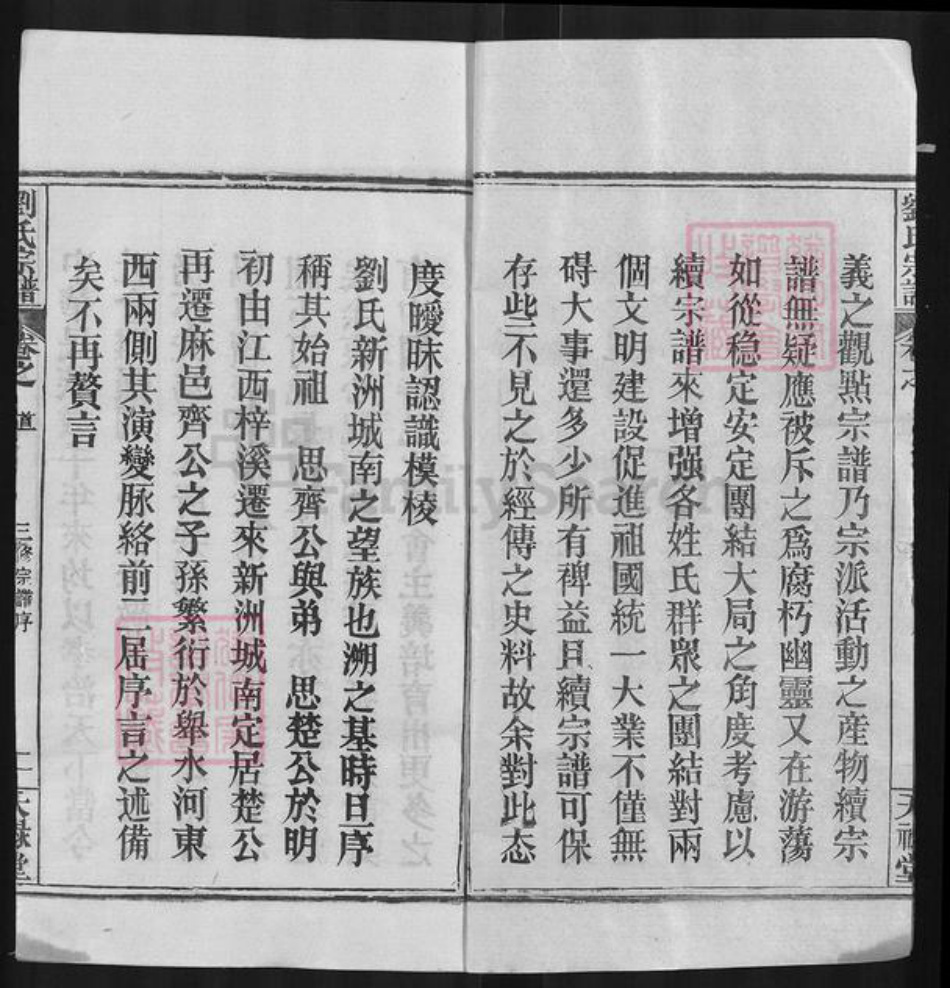 義之觀點宗譜乃宗派活動之産物續宗
譜無疑應被斥之爲腐朽幽靈又在游蕩
如從稳定安定團結大局之角度考慮以
續宗譜來增强各姓氏群眾之團結對兩
個文明建設促進祖國統一大業不僅無
碍大事還多少所有裨益且續宗譜可保
存些不見之於經傳之史料故余對此态
度曖昧認識模棱
劉氏新洲城南之望族也溯之基時日序
稱其始祖　思齊公與弟　思楚公於明
初由江西梓溪遷來新洲城南定居楚公
再遷麻邑齊公之子孫繁衍於舉水河東
西兩側其演變脉絡前二届序言之述備
矣不再贅言
劉氏宗譜
卷之
道
三修宗譜序
二
天禄堂
劉氏宗譜
卷之
天禄堂
FamilySearch